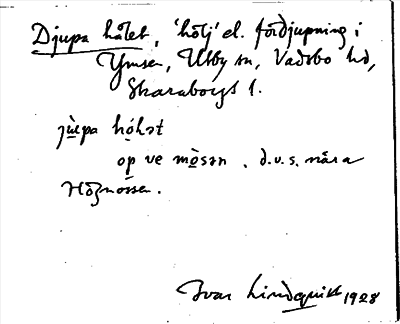 Djupa hålet, 'hölj' el. fördjupning i
Ymsen, Utby sn, Vadsbo hd,
Skaraborgs l.
jùpa
op ve mòsən. d.v.s. nära
Högmossen.
Ivar Lindquist 1928